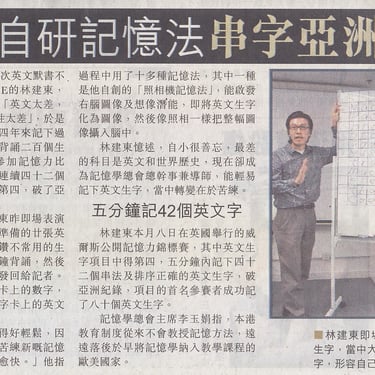 自研記憶法 串字亞洲
次英文默書不
E的林建東,
「英文太差,
性太差」,於是
四年來記下過
背誦二百個生
參加記憶力比
連續四十二個
第四,破了亞
東昨即場表演
準備的廿張英
鑽不常用的生
鐘背誦,然後
發回給記者。
數字卡上的
字卡上的英文
得好輕鬆,因
苦練新嘅記憶
愉快。」他指
過程中用了十多種記憶法,其中一種
是他自創的「照相機記憶法」,能啟發
右腦圖像及想像潛能,即將英文生字
化為圖像,然後像照相一樣把整幅圖
像攝入腦中。
林建東憶述,自小很善忘,最差
的科目是英文和世界歷史,現在卻成
為記憶學總會總幹事兼導師,能輕易
記下英文生字,當中轉變在於苦練。
五分鐘記42個英文字
林建東本月八日在英國舉行的威
爾斯公開記憶力錦標賽,其中英文生
字項目中得第四,五分鐘內記下四十
二個串法及排序正確的英文生字,破
亞洲紀錄,項目的首名參賽者成功記
了八十個英文生字。
記憶學總會主席李玉娟指,本港
教育制度從來不會教授記憶方法,遠
遠落後於早將記憶學納入教學課程的
歐美國家。
■林建東即場
生字,當中大
字,形容自己